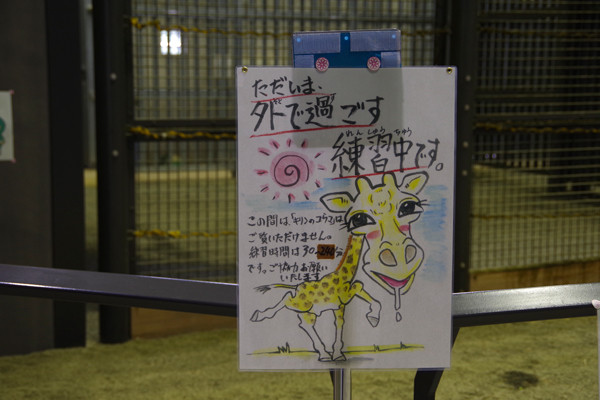 ただいま、
外で過ごす
れんしゅうちゅう
練習中です。
この間は、「キリンのコウタ」は
ご覧いただけません。
練習時間は30~240分
です。ご協力お願い
いたします